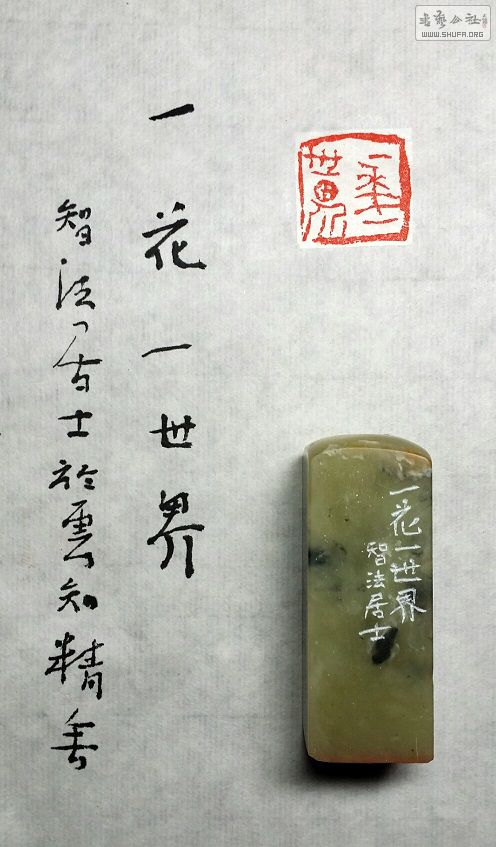 書藝公社
WWW.SHUFA.ORG
一花一世界
一花一世界
智法居士於雲知精舍
一花一世界
智法居士